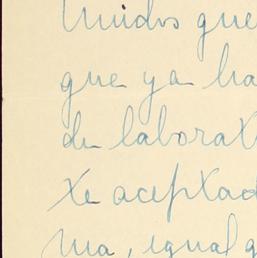 Unidos que
que ya ha
de laborat
te aceptad
ma, igual q